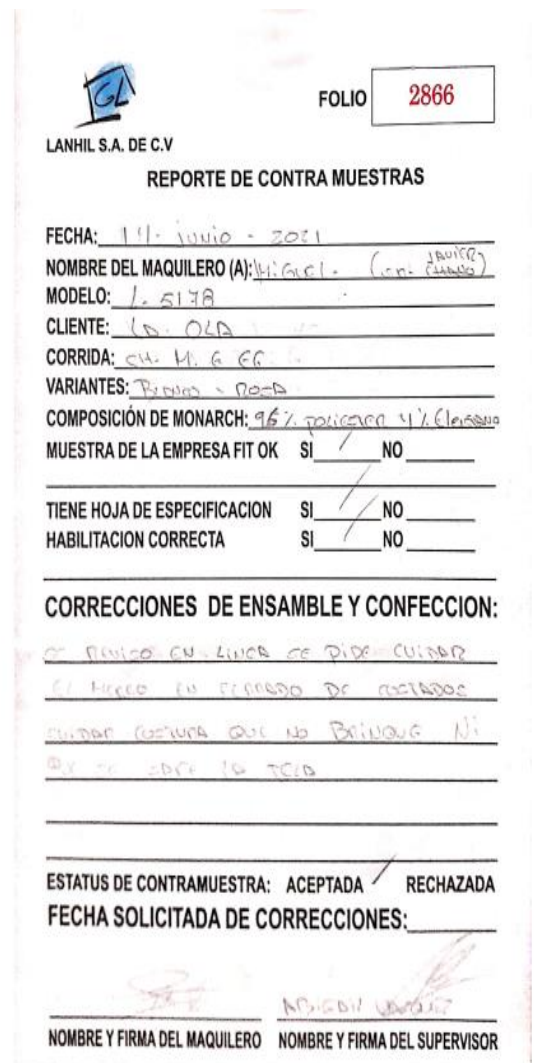 GL
LANHIL S.A. DE C.V
FOLIO 2866
REPORTE DE CONTRA MUESTRAS
FECHA: 14- junio - 2021
NOMBRE DEL MAQUILERO (A): MiGuel. JAVIER
MODELO: L-5178
CLIENTE: LA OLA
CORRIDA: CH. M. G EG
VARIANTES: ROSA
COMPOSICIÓN DE MONARCH: 96% POLIESTER 4% Elastano
MUESTRA DE LA EMPRESA FIT OK SI / NO
TIENE HOJA DE ESPECIFICACION SI / NO
HABILITACION CORRECTA SI / NO
CORRECCIONES DE ENSAMBLE Y CONFECCION:
SE REVISO EN LINEA SE PIDE CUIDAR
EN CERRADO DE COSTADOS
CUIDAR COSTURA QUE NO BRINQUE Ni
LA TELA
ESTATUS DE CONTRAMUESTRA: ACEPTADA / RECHAZADA
FECHA SOLICITADA DE CORRECCIONES:
ABIGAIL
NOMBRE Y FIRMA DEL MAQUILERO NOMBRE Y FIRMA DEL SUPERVISOR